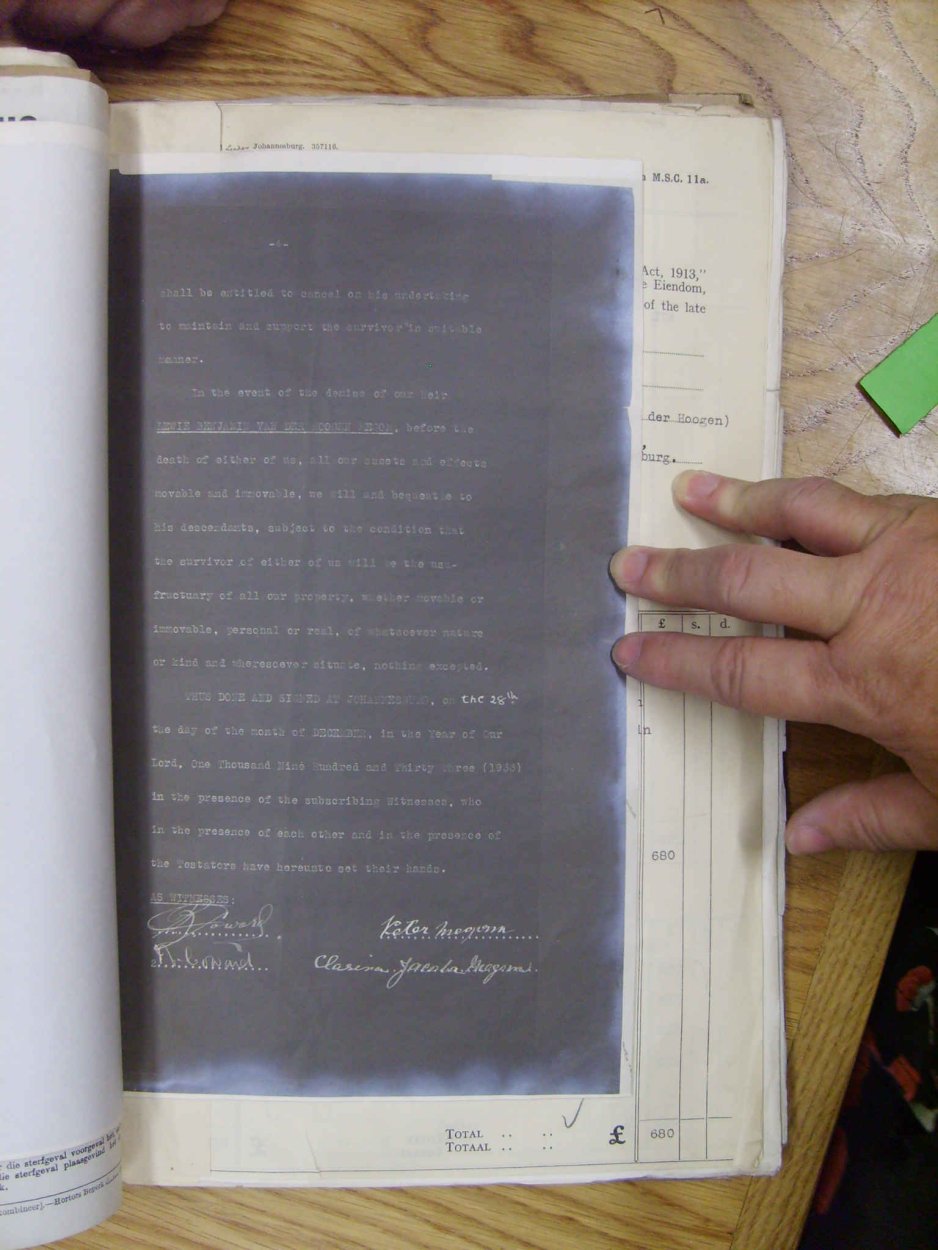 Johannesburg. 357116.
M.S.C. 11a.
Act, 1913,"
e Eiendom,
of the late
der Hoogen)
burg.
-4-
shall be entitled to cancel on his undertaking
to maintain and support the survivor in suitable
manner.
In the event of the demise of our heir
BENJAMIN VAN DER HOOGEN, before the
death of either of us, all our assets and effects
movable and immovable, we will and bequeathe to
his descendants, subject to the condition that
the survivor of either of us will be the usu-
fructuary of all our property, whether movable or
immovable, personal or real, of whatsoever nature
or kind and wheresoever situate, nothing excepted.
THUS DONE AND SIGNED AT JOHANNESBURG, on the 28th
the day of the month of DECEMBER, in the Year of Our
Lord, One Thousand Nine Hundred and Thirty Three (1933)
in the presence of the subscribing Witnesses, who
in the presence of each other and in the presence of
the Testators have hereunto set their hands.
AS WITNESSES:
Coward
Coward
Clarina Jacoba
£ s. d.
n
680
TOTAL .. ..
TOTAAL .. ..
£ 680
die sterfgeval voorgeval het
die sterfgeval plaasgevind het
k.
kombineer].—Hortors Beperk